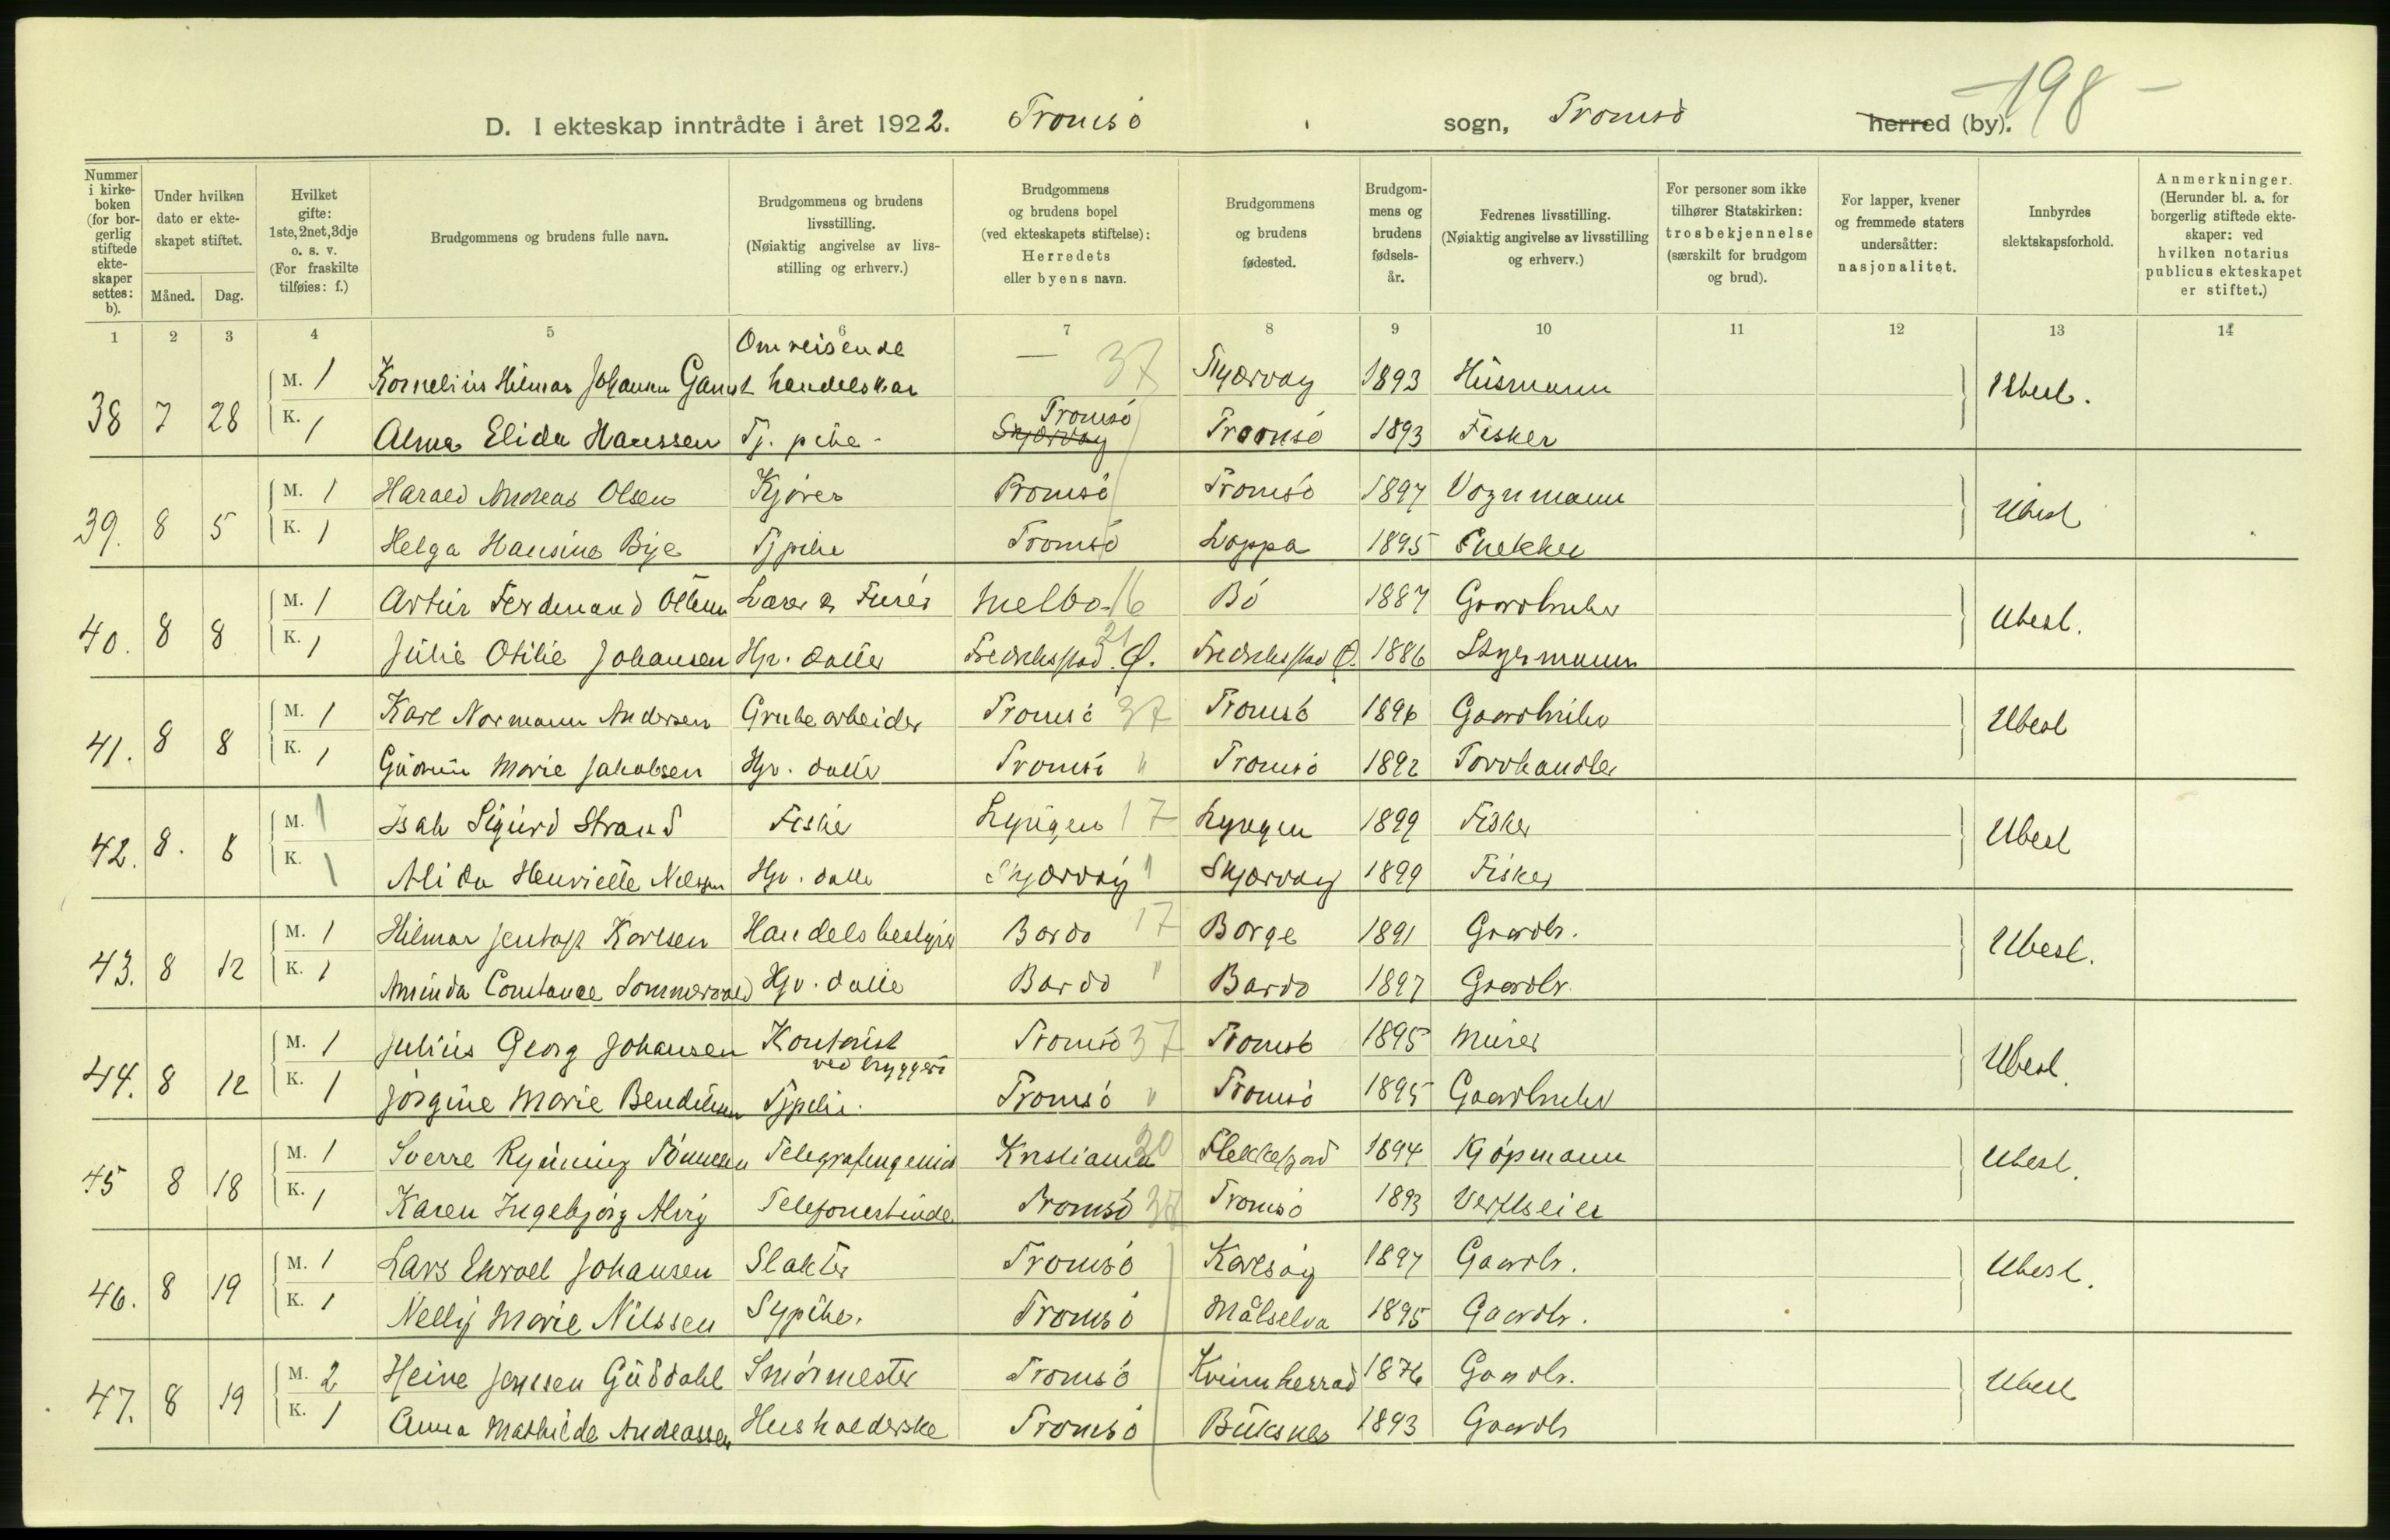 -198-
D. I ekteskap inntrådte i året 1922. Tromsö sogn, Tromsö herred (by).
Nummer i kirke-boken (for bor-gerlig stiftede ekte-skaper settes: b).
Under hvilken dato er ekte-skapet stiftet.
Måned. Dag.
Hvilket gifte: 1ste, 2net, 3dje o. s. v. (For fraskilte tilføies: f.)
Brudgommens og brudens fulle navn.
Brudgommens og brudens livsstilling. (Nøiaktig angivelse av livs-stilling og erhverv.)
Brudgommens og brudens bopel (ved ekteskapets stiftelse): Herredets eller byens navn.
Brudgommens og brudens fødested.
Brudgom-mens og brudens fødsels-år.
Fedrenes livsstilling. (Nøiaktig angivelse av livsstilling og erhverv.)
For personer som ikke tilhører Statskirken: trosbekjennelse (særskilt for brudgom og brud).
For lapper, kvener og fremmede staters undersåtter: nasjonalitet.
Innbyrdes slektskapsforhold.
Anmerkninger. (Herunder bl. a. for borgerlig stiftede ekte-skaper: ved hvilken notarius publicus ekteskapet er stiftet.)
1 2 3 4 5 6 7 8 9 10 11 12 13 14
Omreisende
38 7 28 M. 1 Kornelius Hilmar Johansen Gamst handelskar — 37 Skjærvøy 1893 Husmann Ubesl.
Tromsö
K. 1 Alma Elida Hanssen Tj. pike - Skjærvøy Tromsö 1893 Fisker
39. 8 5 M. 1 Harald Andreas Olsen Kjörer Tromsö Tromsö 1897 Vognmann Ubesl
K. 1 Helga Hansine Bye Tjpike Tromsö Loppa 1895 Snekker
40. 8 8 M. 1 Artur Ferdinand Olsen Melbo 16 Bö 1887 Gaardbruker Ubesl.
K. 1 Julie Otilie Johansen Hjv. datter Fredrikstad Ø. 21 Fredrikstad Ø. 1886 Styrmann
41. 8 8 M. 1 Karl Normann Andersen Grubearbeider Tromsö 37 Tromsö 1896 Gaardbruker Ubesl
K. 1 Gudrun Marie Jakobsen Hjv. datter Tromsö " Tromsö 1892 Torvhandler
42. 8. 8 M. 1 Isak Sigurd Strand Fisker Lyngen 17 Lyngen 1899 Fisker Ubesl
K. 1 Alida Henriette Nilssen Hjv. datter Skjærvøy " Skjærvøy 1899 Fisker
43. 8 12 M. 1 Hilmar Jentoft Karlsen Handelsbestyrer Bardo 17 Borge 1891 Gaardbr. Ubesl.
K. 1 Aminda Constance Sommervold Hjv. datter Bardo " Bardo 1897 Gaardbr.
44. 8 12 M. 1 Julius Georg Johansen Kontorist Tromsö 37 Tromsö 1895 Murer Ubesl.
ved bryggeri
K. 1 Jörgine Marie Bendiksen Tjpike. Tromsö " Tromsö 1895 Gaardbruker
45 8 18 M. 1 Sverre Rynning Tönnesen Telegrafingeniör Kristiania 20 Flekkefjord 1894 Kjöpmann Ubesl.
K. 1 Karen Ingebjörg Alvig Telefonistinde Tromsö 37 Tromsö 1893 Verftseier
46. 8 19 M. 1 Lars Enrael Johansen Slakter Tromsö Karlsöy 1897 Gaardbr. Ubesl.
K. 1 Nelly Marie Nilssen Sypike. Tromsö Målselva 1895 Gaardbr.
47. 8 19 M. 2 Heine Jenssen Guddahl Smörmester Tromsö Kvinnherrad 1876 Gaardbr. Ubesl
K. 1 Anna Mathilde Andreassen Husholderske Tromsö Buksnes 1893 Gaardbr